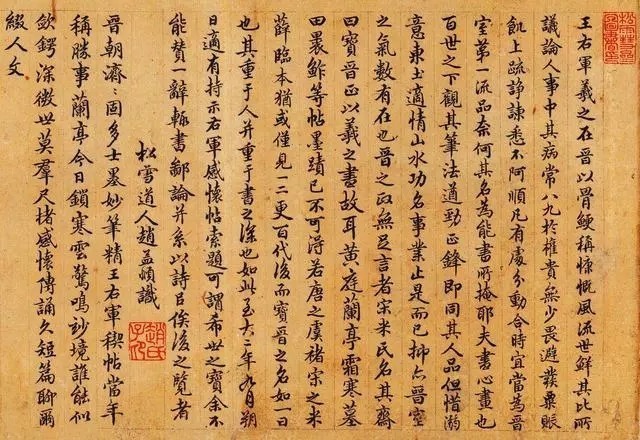 松雪齋圖書印
王右軍羲之在晉以骨鯁稱慷慨風流世鮮其比所
議論人事中其病常八九於權貴無少畏避發粟賑
飢上疏諍諫悉不阿順凡有處分動合時宜當為晉
室第一流品奈何其名為能書所掩耶夫書心畫也
百世之下觀其筆法遒勁正鋒即同其人品但惜溺
意東土適情山水功名事業止是而已抑亦晉室
之氣數有在也晉之政無足言者宋米氏名其齋
曰寶晉正以羲之書故耳黃庭蘭亭霜寒墓
田裹鮓等帖墨蹟已不可得若唐之虞褚宋之米
薛臨本猶或僅見一二更百代後而寶晉之名如一日
也其重于人并重于書之深也如此至大二年九月朔
日適有持示右軍感懷帖索題可謂希世之寶余不
能贊一辭輒書鄙論并系以詩㠯俟後之覽者
松雪道人趙孟頫識
趙氏子昂
晉朝濟〻固多士墨妙筆精王右軍稧帖當年
稱勝事蘭亭今日鎖寒雲驚鳴妙境誰能似
鍔深微世莫羣尺楮感懷傳誦久短篇聊爾
綴人文